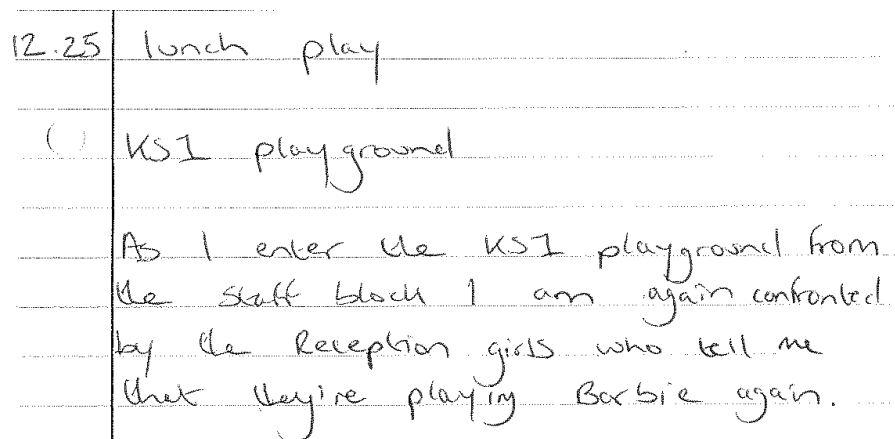 12.25 lunch play
( ) KS1 playground
As I enter the KS1 playground from
the staff block I am again confronted
by the Reception girls who tell me
that they're playing Barbie again.